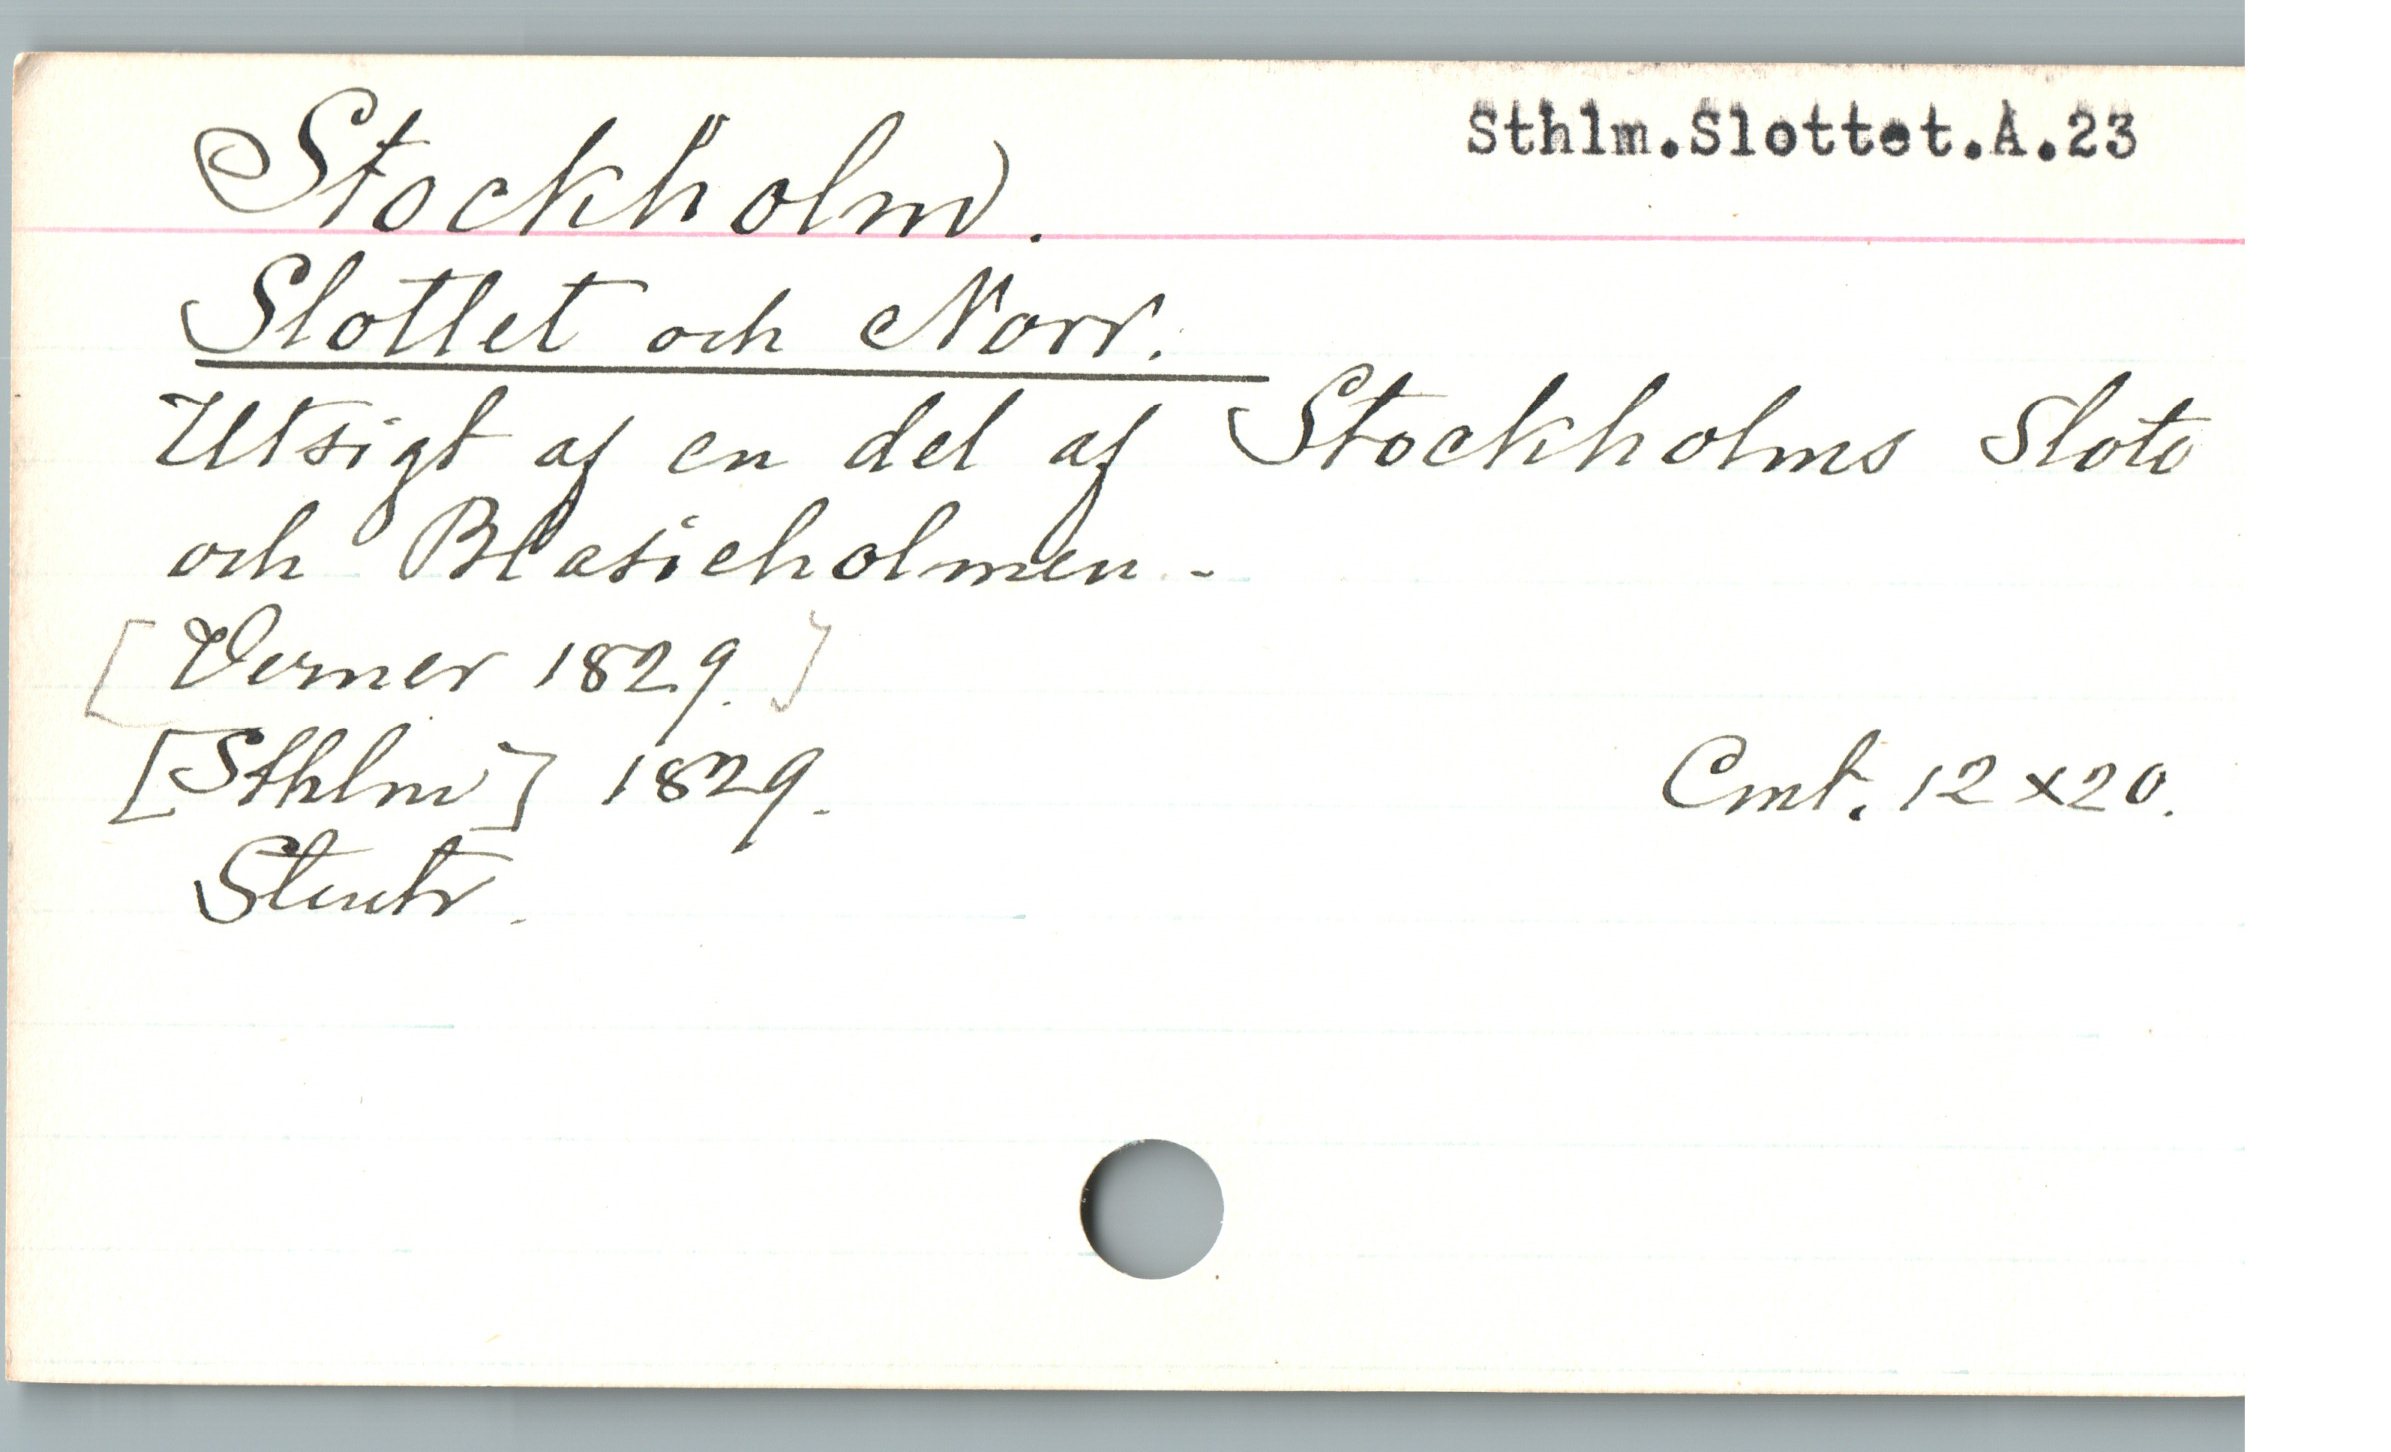 Sthlm.Slottet.A.23
Stockholm.
Slottet och Norr.
Utsigt af en del af Stockholms Slott
och Blasieholmen.
[Verner 1829.]
[Sthlm] 1829.
Cmt. 12 x 20.
Stentr.